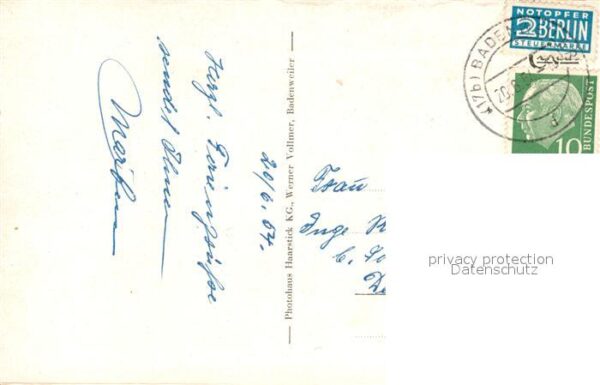 Herzl. Feriengrüße
sendet Ihnen
20/6. 54.
Photohaus Haarstick KG., Werner Vollmer, Badenweiler
NOTOPFER
2 BERLIN
STEUERMARKE
(17b) BADEN
20.6.
d
10
BUNDESPOST
Frau
Inge
b.
privacy protection
Datenschutz